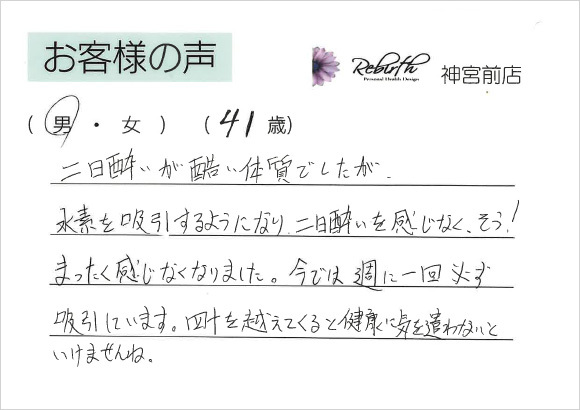 お客様の声
Rebirth
Personal Health Design
神宮前店
( 男 ・ 女 ) ( 41 歳)
二日酔いが酷い体質でしたが、
水素を吸引するようになり、二日酔いを感じなく、そう!
まったく感じなくなりました。今では週に一回必ず
吸引しています。四十を越えてくると健康に気を遣わないと
いけませんね。